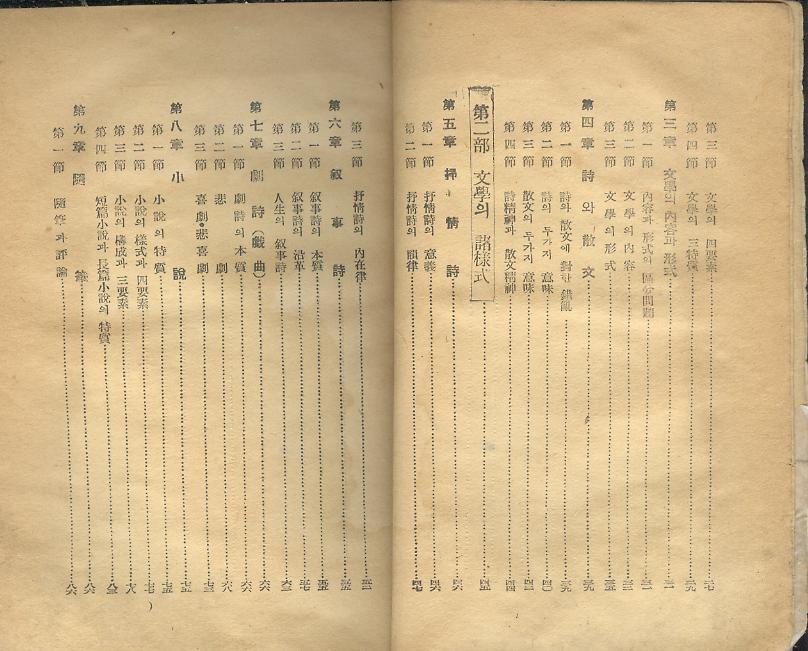 第三節 文學의 四要素
第四節 文學의 三特質
第三章 文學의 內容과 形式
第一節 內容과 形式의 區分問題
第二節 文學의 內容
第三節 文學의 形式
第四章 詩와 散文
第一節 詩와 散文에 對한 錯亂
第二節 詩의 두가지 意味
第三節 散文의 두가지 意味
第四節 詩精神과 散文精神
第二部 文學의 諸樣式
第五章 抒情詩
第一節 抒情詩의 意義
第二節 抒情詩의 韻律
第三節 抒情詩의 內在律
第六章 叙事詩
第一節 叙事詩의 本質
第二節 叙事詩의 沿革
第三節 人生의 叙事詩
第七章 劇詩(戱曲)
第一節 劇詩의 本質
第二節 悲劇
第三節 喜劇·悲喜劇
第八章 小說
第一節 小說의 特質
第二節 小說의 樣式과 四要素
第三節 小說의 構成과 三要素
第四節 短篇小說과 長篇小說의 特質
第九章 隨筆
第一節 隨筆과 評論